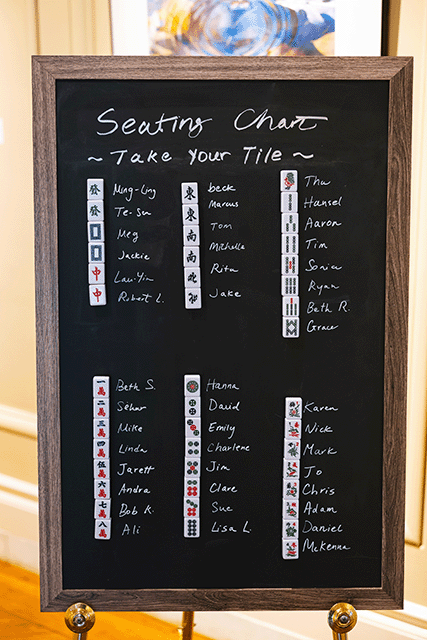 Seating Chart
~ Take Your Tile ~
發 Ming-Ling
發 Te-Su
Meg
Jackie
中 Lau-Yim
中 Robert L.
東 beck
東 Marcus
南 Tom
南 Michelle
北 Rita
北 Jake
Thu
Hansel
Aaron
Tim
Sonia
Ryan
Beth R.
Grace
一萬 Beth S.
二萬 Sehar
三萬 Mike
四萬 Linda
伍萬 Jarett
六萬 Andra
七萬 Bob K.
八萬 Ali
Hanna
David
Emily
Charlene
Jim
Clare
Sue
Lisa L.
Karen
Nick
Mark
Jo
Chris
Adam
Daniel
McKenna